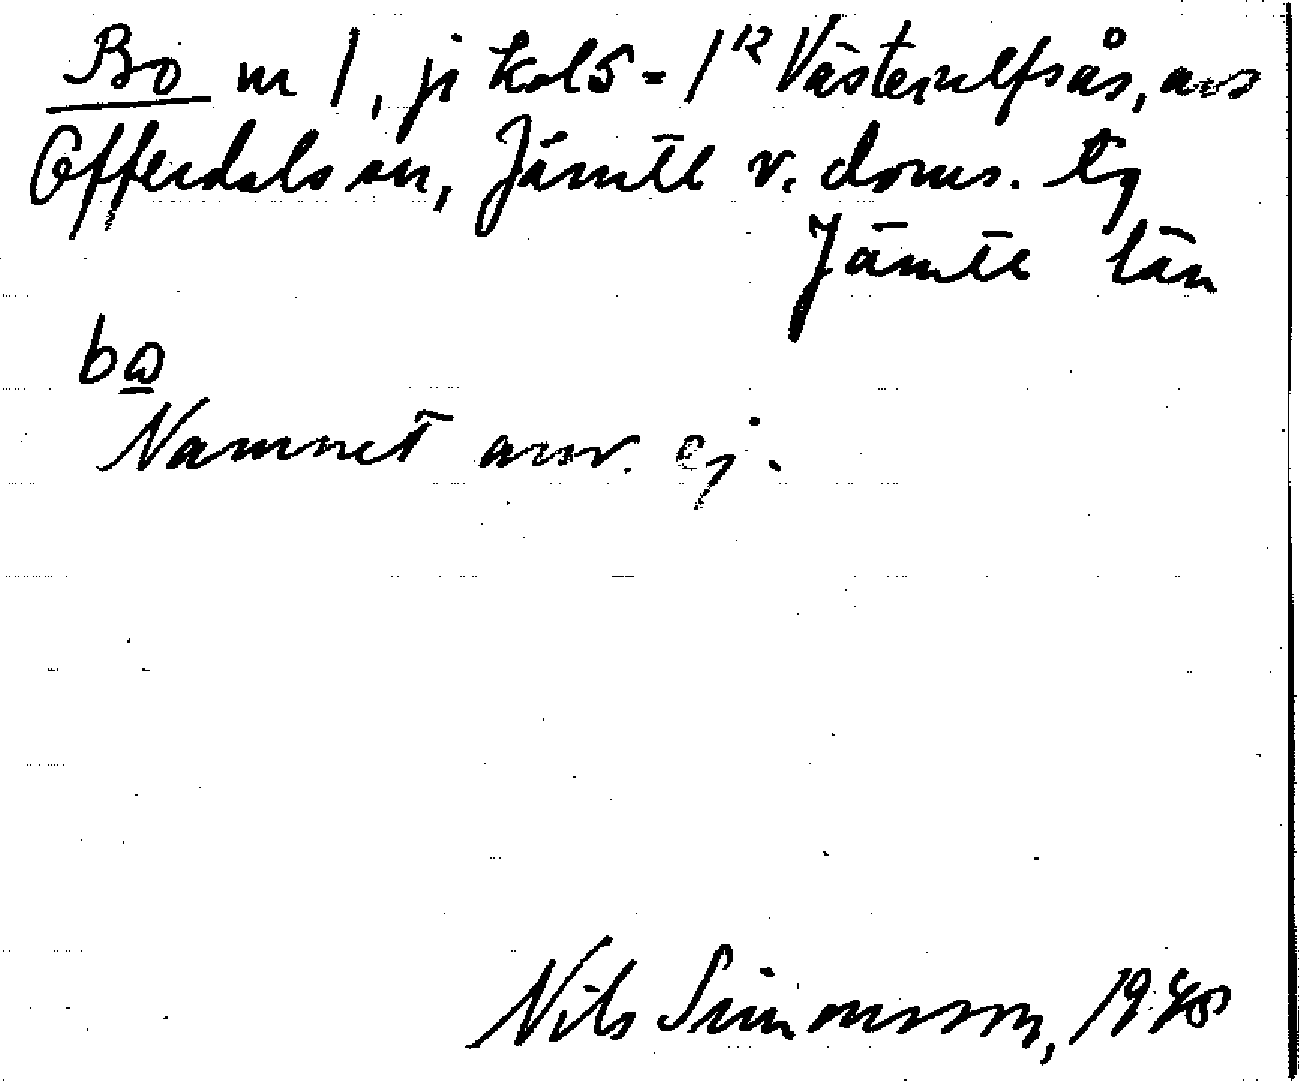 Bo nr 1, ji kol 5 = 1¹² Västerulfsås, avs
Offerdals sn, Jämtl v. doms. tg
Jämtl län
bω
Namnet anv. ej.
Nils Simonsson, 1940